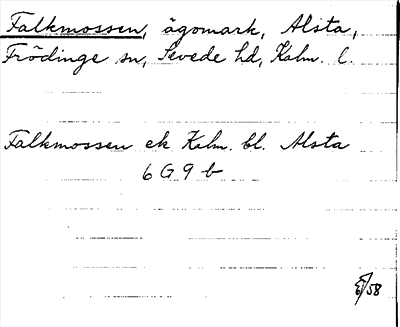 Falkmossen, ägomark, Alsta,
Frödinge sn, Sevede hd, Kalm. l.
Falkmossen ek Kalm. bl. Alsta
6 G 9 b
/58